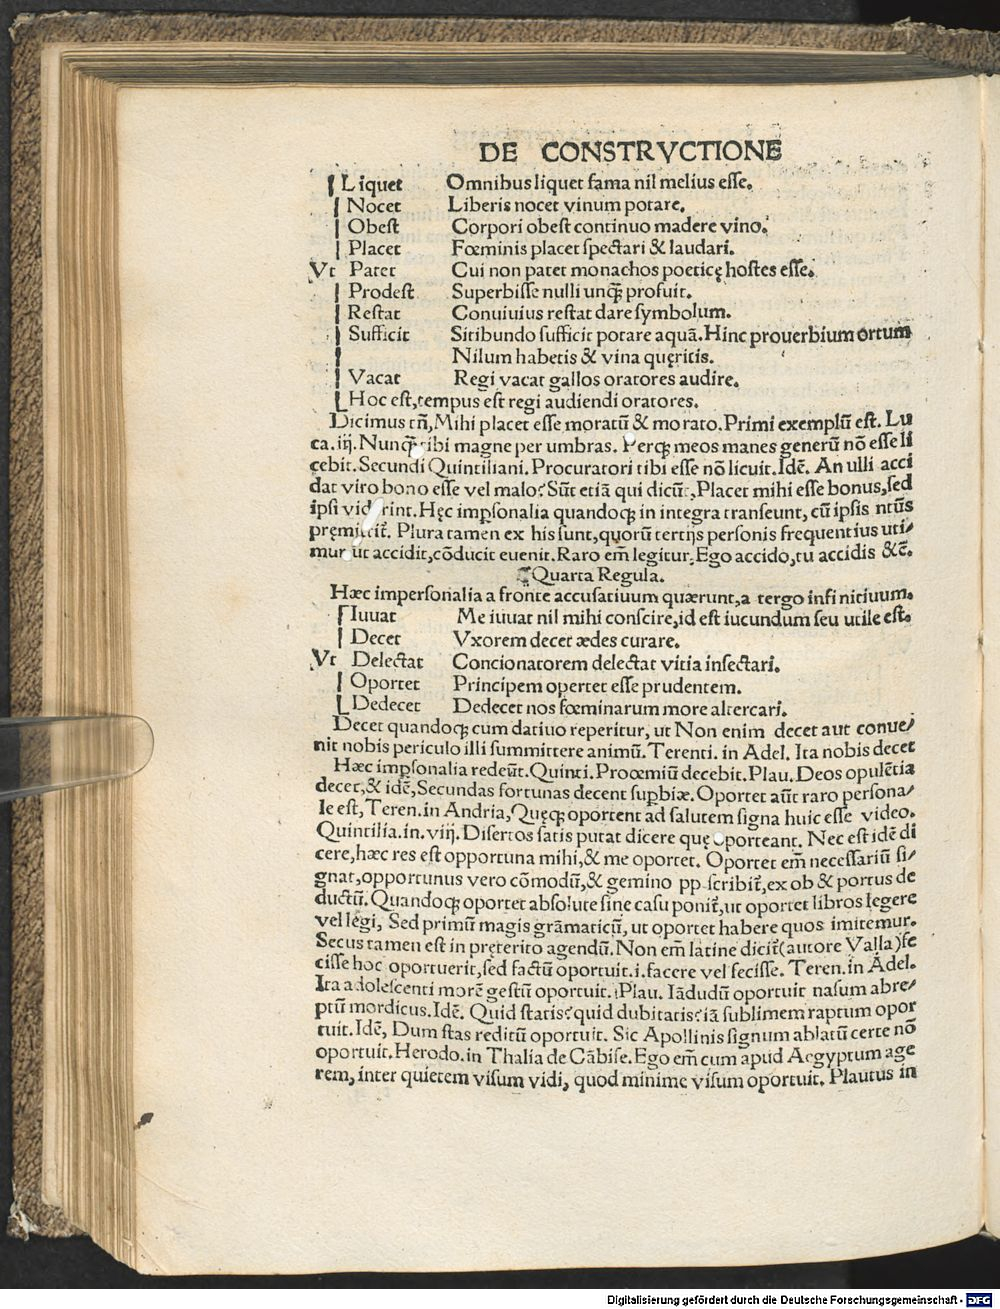 DE CONSTRVCTIONE
Liquet Omnibus liquet fama nil melius esse.
Nocet Liberis nocet vinum potare.
Obest Corpori obest continuo madere vino.
Placet Fœminis placet spectari & laudari.
Vt Patet Cui non patet monachos poeticę hostes esse.
Prodest Superbisse nulli unq̃ profuit.
Restat Conuiuius restat dare symbolum.
Sufficit Sitibundo sufficit potare aquã. Hinc prouerbium ortum
Nilum habetis & vina quęritis.
Vacat Regi vacat gallos oratores audire.
Hoc est, tempus est regi audiendi oratores.
Dicimus tñ, Mihi placet esse moratũ & morato. Primi exemplũ est. Lu
ca. iij. Nunq̃ tibi magne per umbras. Perq; meos manes generũ nõ esse li
cebit. Secundi Quintiliani. Procuratori tibi esse nõ licuit. Idẽ. An ulli acci
dat viro bono esse vel malo? Sũt etiã qui dicũt, Placet mihi esse bonus, sed
ipsi viderint. Hęc imp̱sonalia quandoq; in integra transeunt, cũ ipsis ntũs
pręmittit̃. Plura tamen ex his sunt, quorũ tertijs personis frequentius uti/
mur ut accidit, cõducit euenit. Raro em̃ legitur. Ego accido, tu accidis &c̃.
Quarta Regula.
Hæc impersonalia a fronte accusatiuum quærunt, a tergo infinitiuum.
Iuuat Me iuuat nil mihi conscire, id est iucundum seu utile est.
Decet Vxorem decet ædes curare.
Vt Delectat Concionatorem delectat vitia insectari.
Oportet Principem opertet esse prudentem.
Dedecet Dedecet nos fœminarum more altercari.
Decet quandoq; cum datiuo reperitur, ut Non enim decet aut conue/
nit nobis periculo illi summittere animũ. Terenti. in Adel. Ita nobis decet
Hæc imp̱sonalia redeũt. Quinti. Proœmiũ decebit. Plau. Deos opulẽtia
decet, & idẽ, Secundas fortunas decent sup̱biæ. Oportet aũt raro persona/
le est, Teren. in Andria, Quęq; oportent ad salutem signa huic esse video.
Quintilia. in. viij. Disertos satis putat dicere quę oporteant. Nec est idẽ di
cere, hæc res est opportuna mihi, & me oportet. Oportet em̃ necessariũ si/
gnat, opportunus vero cõmodũ, & gemino pp scribit̃, ex ob & portus de
ductũ. Quandoq; oportet absolute sine casu ponit̃, ut oportet libros legere
vel legi, Sed primũ magis grãmaticũ, ut oportet habere quos imitemur.
Secus tamen est in pręterito agendũ. Non em̃ latine dicit̃ (autore Valla) fe
cisse hoc oportuerit, sed factũ oportuit. i. facere vel fecisse. Teren. in Adel.
Ita adolescenti morẽ gestũ oportuit. Plau. Iãdudũ oportuit nasum abre/
ptũ mordicus. Idẽ. Quid statis? quid dubitatis? iã sublimem raptum opor
tuit. Idẽ, Dum stas reditũ oportuit. Sic Apollinis signum ablatũ certe nõ
oportuit. Herodo. in Thalia de Cãbise. Ego em̃ cum apud Aegyptum age
rem, inter quietem visum vidi, quod minime visum oportuit. Plautus in
Digitalisierung gefördert durch die Deutsche Forschungsgemeinschaft - DFG